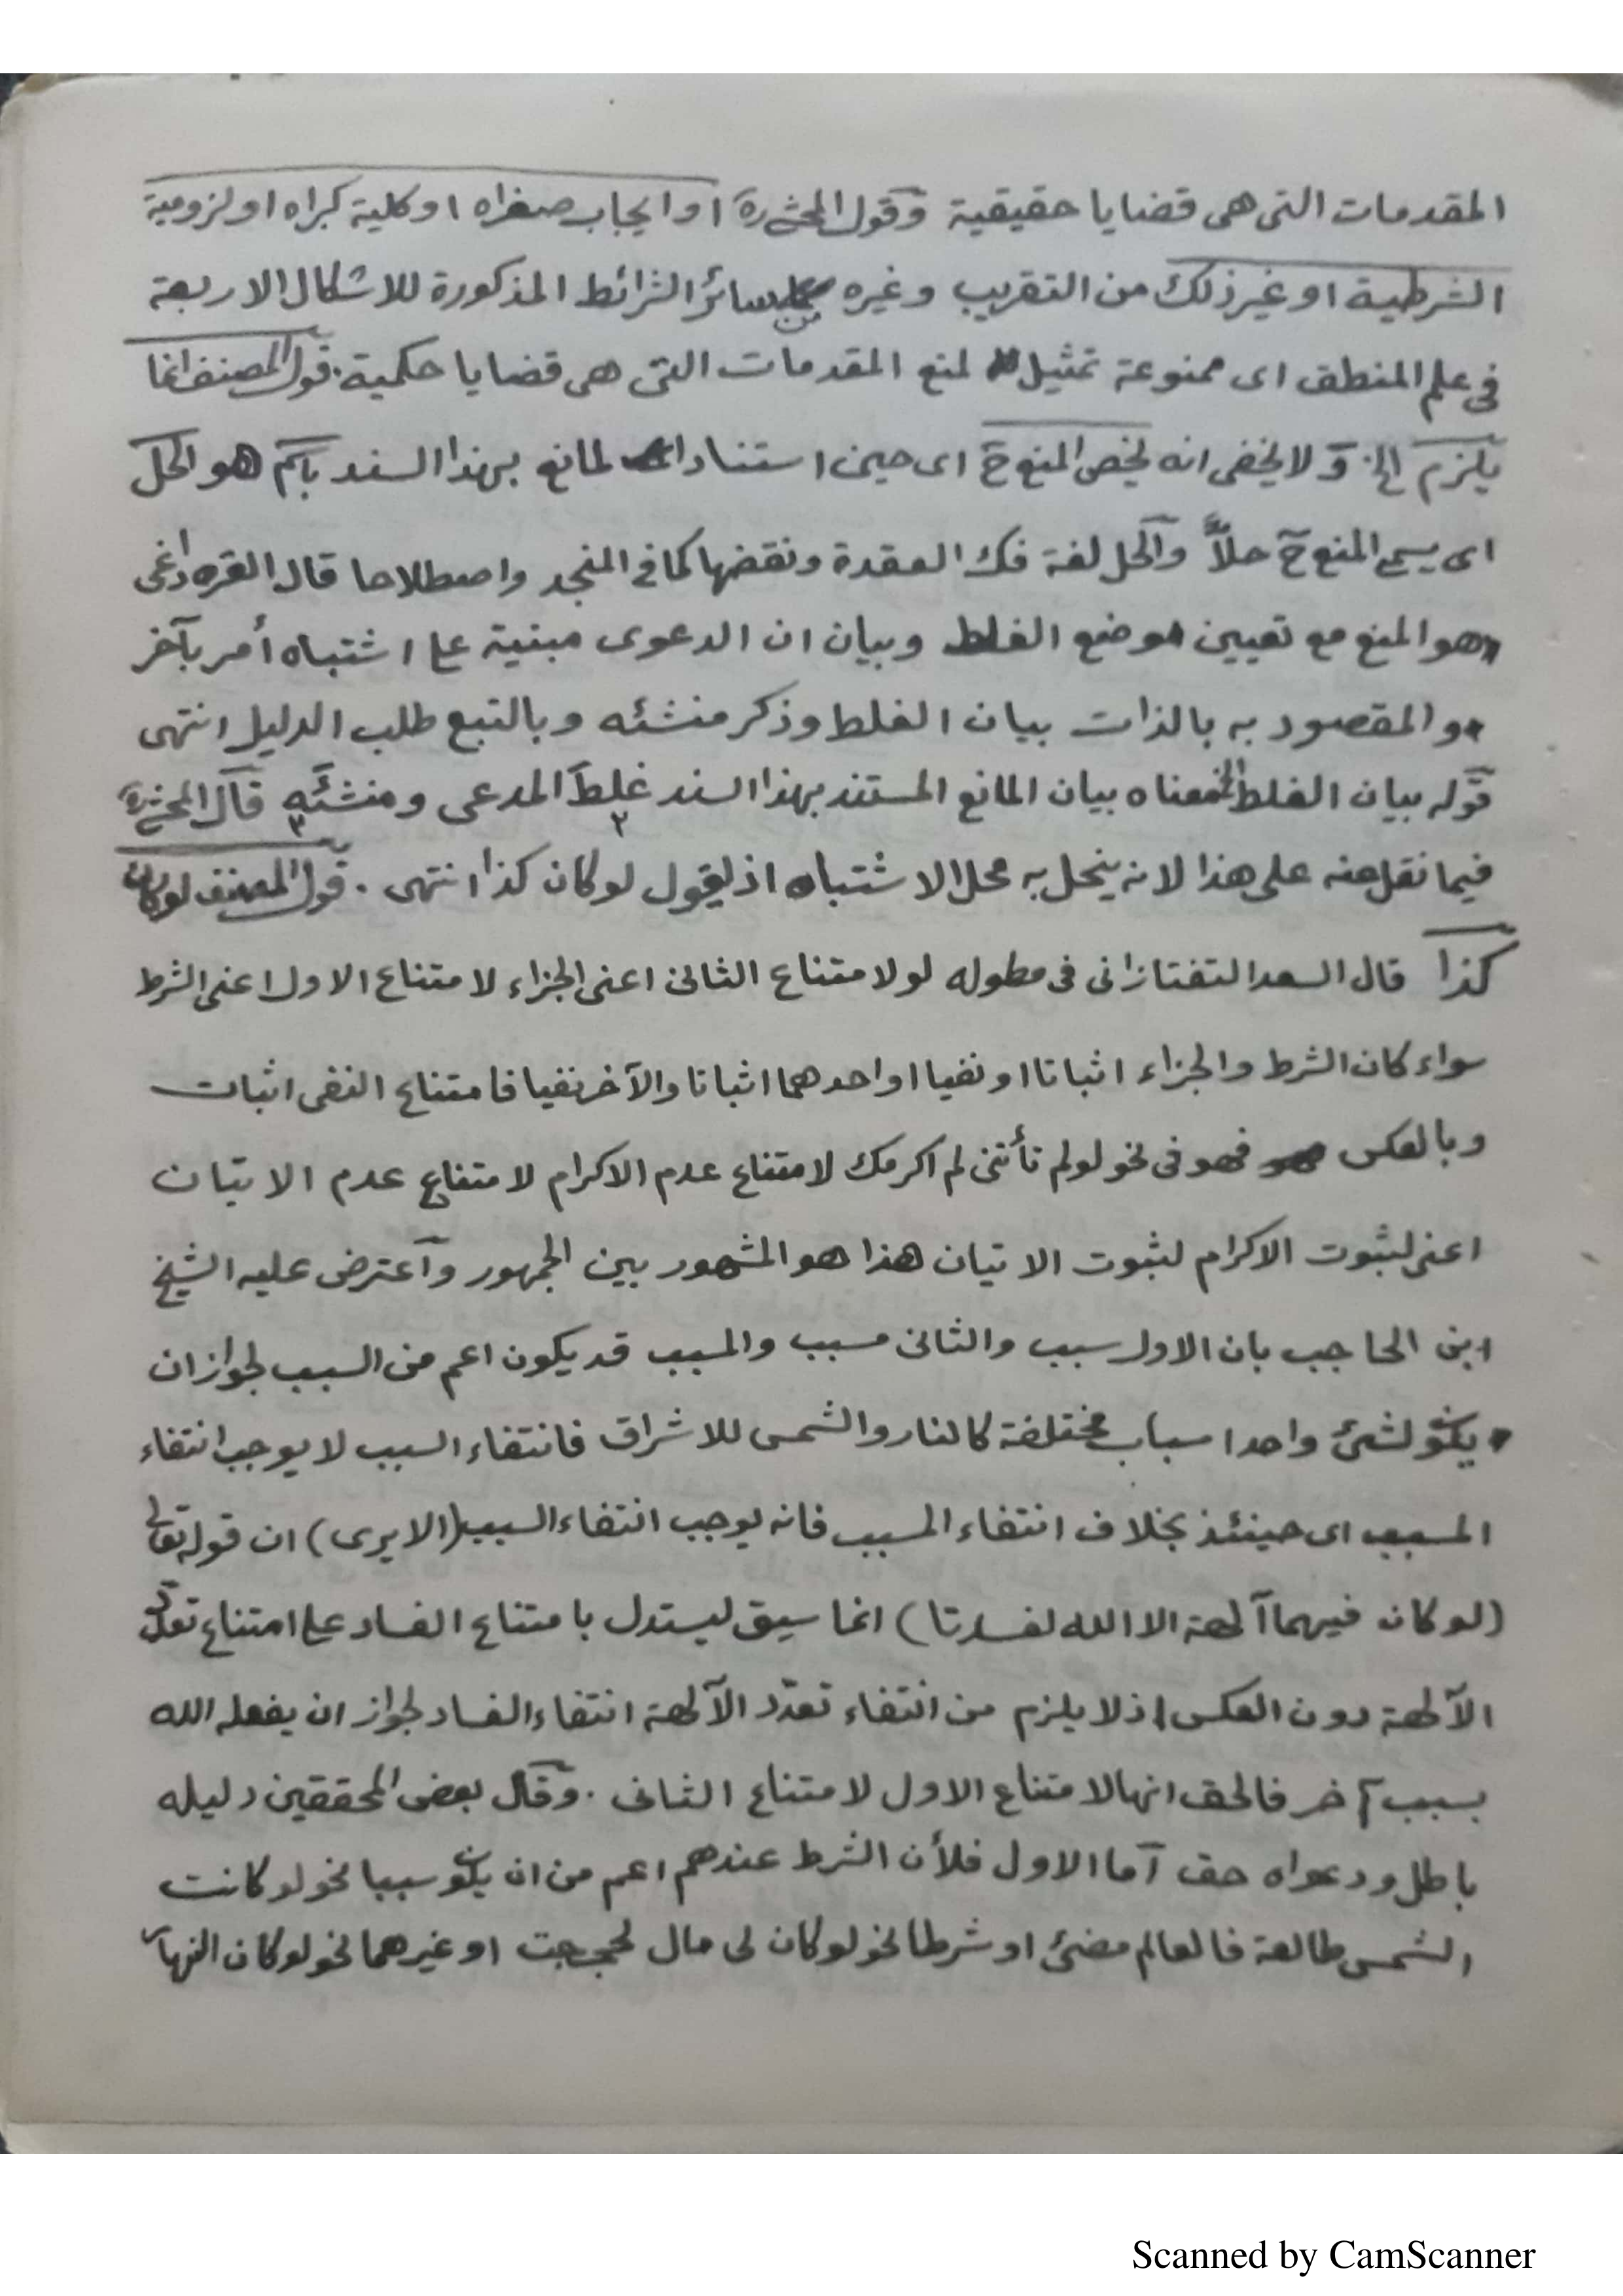 المقدمات التى هى قضايا حقيقية وقول المحشى ره او ايجاب صغراه او كلية كبراه او لزومية
الشرطية او غير ذلك من التقريب وغيره من سائر الشرائط المذكورة للاشكال الاربعة
فى علم المنطق اى ممنوعة تمثيل لمنع المقدمات التى هى قضايا حكمية. قول المصنف انما
يلزم الخ. و لا يخفى انه يخص المنع ح اى حين استناد المانع بهذا السند باسم هو الحل
اى يسمى المنع ح حلاً والحل لغة فك العقدة ونقضها كما فى المنجد واصطلاحا قال القره داغى
هو المنع مع تعيين موضع الغلط وبيان ان الدعوى مبنية على اشتباه أمر بآخر
والمقصود به بالذات بيان الغلط وذكر منشئه وبالتبع طلب الدليل انتهى
قوله بيان الغلط الخ معناه بيان المانع المستند بهذا السند غلط المدعى ومنشئه قال المحشى ره
فيما نقل عنه على هذا لانه ينحل به محل الاشتباه اذ يقول لو كان كذا انتهى . قول المصنف لو كان
كذا قال السعد التفتازانى فى مطوله لو لامتناع الثانى اعنى الجزاء لامتناع الاول اعنى الشرط
سواء كان الشرط والجزاء اثباتا او نفيا او احدهما اثباتا والآخر نفيا فامتناع النفى اثبات
وبالعكس فهو فى نحو لو لم تأتنى لم اكرمك لامتناع عدم الاكرام لامتناع عدم الاتيان
اعنى لثبوت الاكرام لثبوت الاتيان هذا هو المشهور بين الجمهور واعترض عليه الشيخ
ابن الحاجب بان الاول سبب والثانى مسبب والمسبب قد يكون اعم من السبب لجواز ان
يكون لشئ واحد اسباب مختلفة كالنار والشمس للاشراق فانتفاء السبب لا يوجب انتفاء
المسبب اى حينئذ بخلاف انتفاء المسبب فانه يوجب انتفاء السبب (الا يرى) ان قوله تعالى
(لو كان فيهما آلهة الا الله لفسدتا) انما سيق ليستدل بامتناع الفساد على امتناع تعدد
الآلهة دون العكس اذ لا يلزم من انتفاء تعدّد الآلهة انتفاء الفساد لجواز ان يفعله الله
بسبب آخر فالحق انها لامتناع الاول لامتناع الثانى . وقال بعض المحققين دليله
باطل ودعواه حق اما الاول فلأن الشرط عندهم اعم من ان يكون سببا نحو لو كانت
الشمس طالعة فالعالم مضئ او شرطا نحو لو كان لى مال لحججت او غيرهما نحو لو كان النهار
Scanned by CamScanner